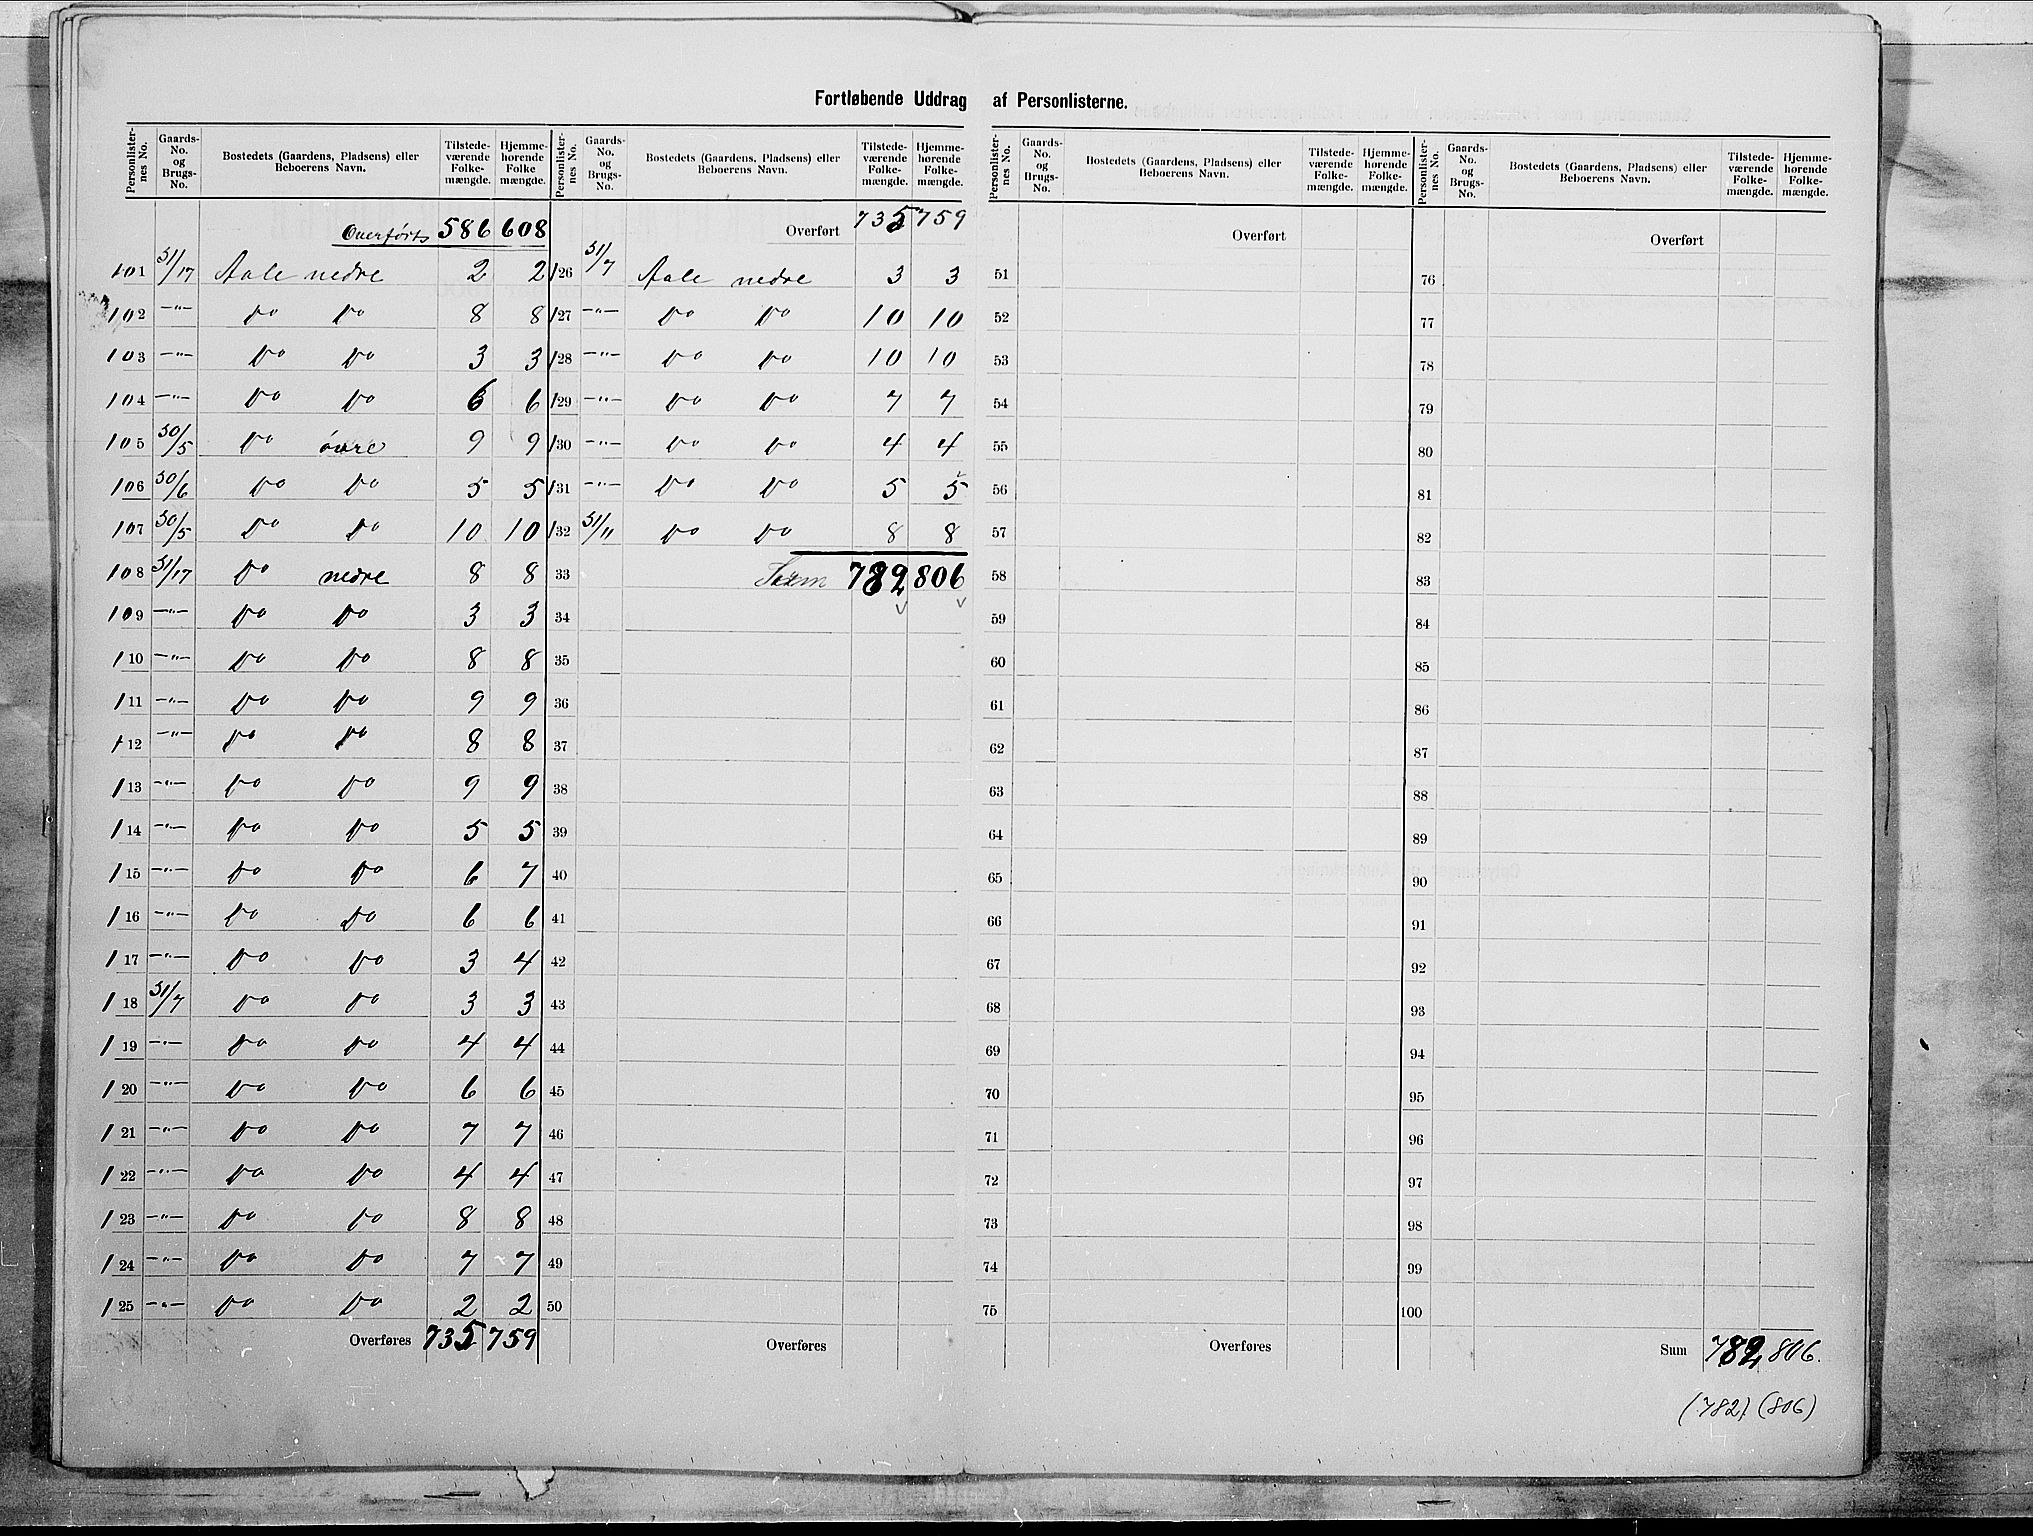 Fortløbende Uddrag af Personlisterne.
Personlisternes No. | Gaards-No. og Brugs-No. | Bostedets (Gaardens, Pladsens) eller Beboerens Navn. | Tilstedeværende Folkemængde. | Hjemmehørende Folkemængde.
Overførts 586 608
101 51/17 Aale nedre 2 2
102 —"— Do Do 8 8
103 —"— Do Do 3 3
104 —"— Do Do 6 6
105 50/5 Do övre 9 9
106 50/6 Do Do 5 5
107 50/5 Do Do 10 10
108 51/17 Do nedre 8 8
109 —"— Do Do 3 3
110 —"— Do Do 8 8
111 —"— Do Do 9 9
112 —"— Do Do 8 8
113 —"— Do Do 9 9
114 —"— Do Do 5 5
115 —"— Do Do 6 7
116 —"— Do Do 6 6
117 —"— Do Do 3 4
118 51/7 Do Do 3 3
119 —"— Do Do 4 4
120 —"— Do Do 6 6
121 —"— Do Do 7 7
122 —"— Do Do 4 4
123 —"— Do Do 8 8
124 —"— Do Do 7 7
125 —"— Do Do 2 2
Overføres 735 759
Personlisternes No. | Gaards-No. og Brugs-No. | Bostedets (Gaardens, Pladsens) eller Beboerens Navn. | Tilstedeværende Folkemængde. | Hjemmehørende Folkemængde.
Overført 735 759
126 51/7 Aale nedre 3 3
127 —"— Do Do 10 10
128 —"— Do Do 10 10
129 —"— Do Do 7 7
130 —"— Do Do 4 4
131 —"— Do Do 5 5
132 51/11 Do Do 8 8
33 Sum 782 806
34
35
36
37
38
39
40
41
42
43
44
45
46
47
48
49
50
Overføres
Personlisternes No. | Gaards-No. og Brugs-No. | Bostedets (Gaardens, Pladsens) eller Beboerens Navn. | Tilstedeværende Folkemængde. | Hjemmehørende Folkemængde.
Overført
51
52
53
54
55
56
57
58
59
60
61
62
63
64
65
66
67
68
69
70
71
72
73
74
75
Overføres
Personlisternes No. | Gaards-No. og Brugs-No. | Bostedets (Gaardens, Pladsens) eller Beboerens Navn. | Tilstedeværende Folkemængde. | Hjemmehørende Folkemængde.
Overført
76
77
78
79
80
81
82
83
84
85
86
87
88
89
90
91
92
93
94
95
96
97
98
99
100
Sum 782 806.
(782) (806)